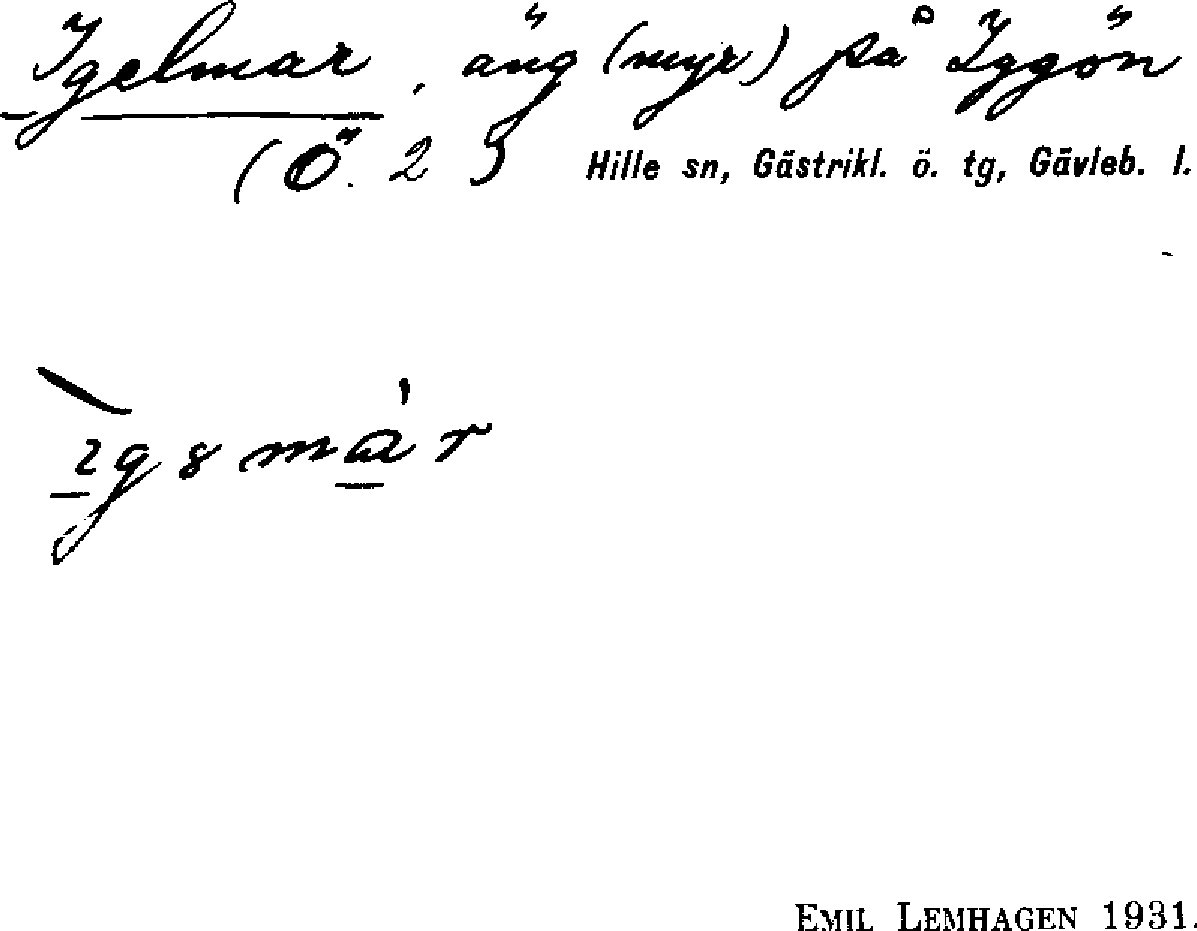 Igelmar, äng (myr) på Iggön
(Ö. 2) Hille sn, Gästrikl. ö. tg, Gävleb. l.
EMIL LEMHAGEN 1931.